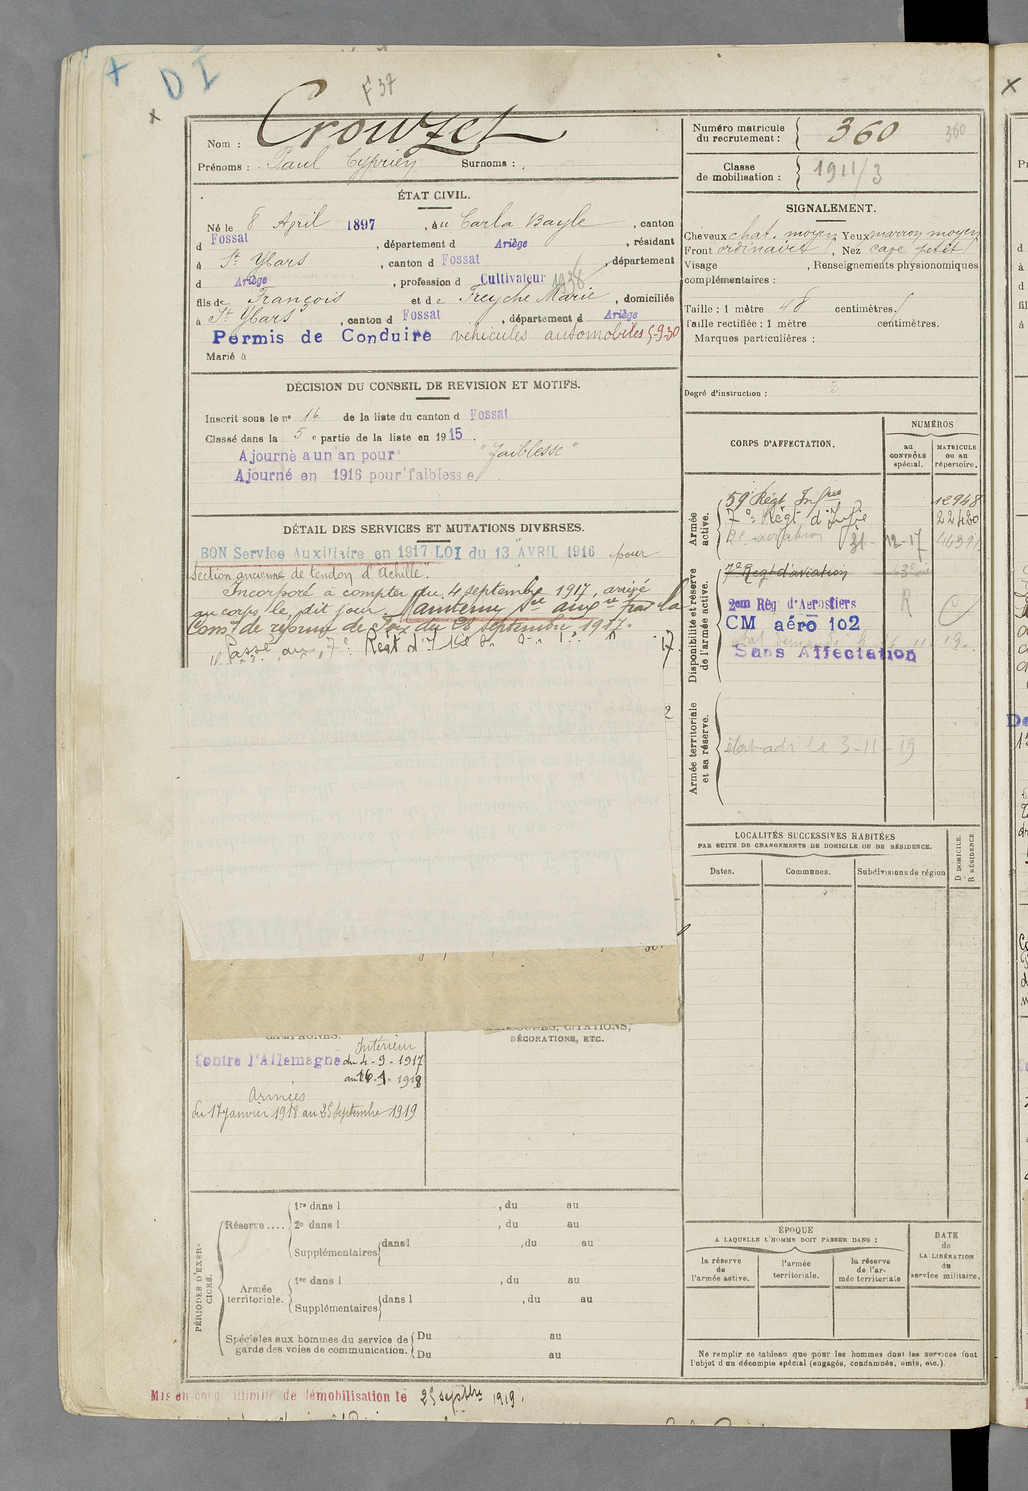 + D I
F 37
Nom : Crouzet
Prénoms : Paul Cyprien Surnoms :
ÉTAT CIVIL.
Né le 8 April 1897, à Carla Bayle, canton
d Fossat, département d Ariège, résidant
à St Ybars, canton d Fossat, département
d Ariège, profession d Cultivateur 1938
fils de François et de Freyche Marie, domiciliés
à St Ybars, canton d Fossat, département d Ariège
Permis de Conduire véhicules automobiles 5-9-30
Marié à
DÉCISION DU CONSEIL DE REVISION ET MOTIFS.
Inscrit sous le no 16 de la liste du canton d Fossat
Classé dans la 5 e partie de la liste en 1915.
Ajourné a un an pour "faiblesse"
Ajourné en 1916 pour faiblesse
DÉTAIL DES SERVICES ET MUTATIONS DIVERSES.
BON Service Auxiliaire en 1917 LOI du 13 AVRIL 1916 pour
section ancienne de tendon d'Achille".
Incorporé à compter du 4 septembre 1917, arrivé
au corps le dit jour. Maintenu Sce auxre par la
Comon de réforme de Foix du 28 septembre 1917.
Passé au 7e Régt d'Inf
CAMPAGNES.
Contre l'Allemagne
Intérieur
du 4-9-1917
au 16-1-1918
Armées
du 17 janvier 1918 au 25 septembre 1919
CITATIONS,
DÉCORATIONS, ETC.
PÉRIODES D'EXERCICES.
Réserve ....
1re dans l , du au
2e dans l , du au
Supplémentaires dans l , du au
Armée territoriale.
1re dans l , du au
Supplémentaires dans l , du au
Spéciales aux hommes du service de garde des voies de communication.
Du au
Du au
Mis en congé illimité de démobilisation le 25 septbre 1919.
Numéro matricule
du recrutement : 360 360
Classe
de mobilisation : 1911/3
SIGNALEMENT.
Cheveux chat. moyen Yeux marron moyen
Front ordinaire, Nez cave petit
Visage , Renseignements physionomiques
complémentaires :
Taille : 1 mètre 48 centimètres.
Taille rectifiée : 1 mètre centimètres.
Marques particulières :
Degré d'instruction : 3
CORPS D'AFFECTATION.
NUMÉROS
au CONTRÔLE spécial.
MATRICULE ou au répertoire.
Armée active.
59e Régt Infrie 12948
7e Régt d'Infie 22420
aviation 31-12-17
Disponibilité et réserve de l'armée active.
2e Régt d'aviation
2em Rég d'Aerostiers R C
CM aéro 102
Sans Affectation
Armée territoriale et sa réserve.
3-11-19
LOCALITÉS SUCCESSIVES HABITÉES
PAR SUITE DE CHANGEMENTS DE DOMICILE OU DE RÉSIDENCE.
Dates. Communes. Subdivisions de région
D DOMICILE. R RÉSIDENCE.
ÉPOQUE
A LAQUELLE L'HOMME DOIT PASSER DANS :
la réserve de l'armée active.
l'armée territoriale.
la réserve de l'armée territoriale
DATE de LA LIBÉRATION du service militaire.
Ne remplir ce tableau que pour les hommes dont les services font
l'objet d'un décompte spécial (engagés, condamnés, omis, etc.).